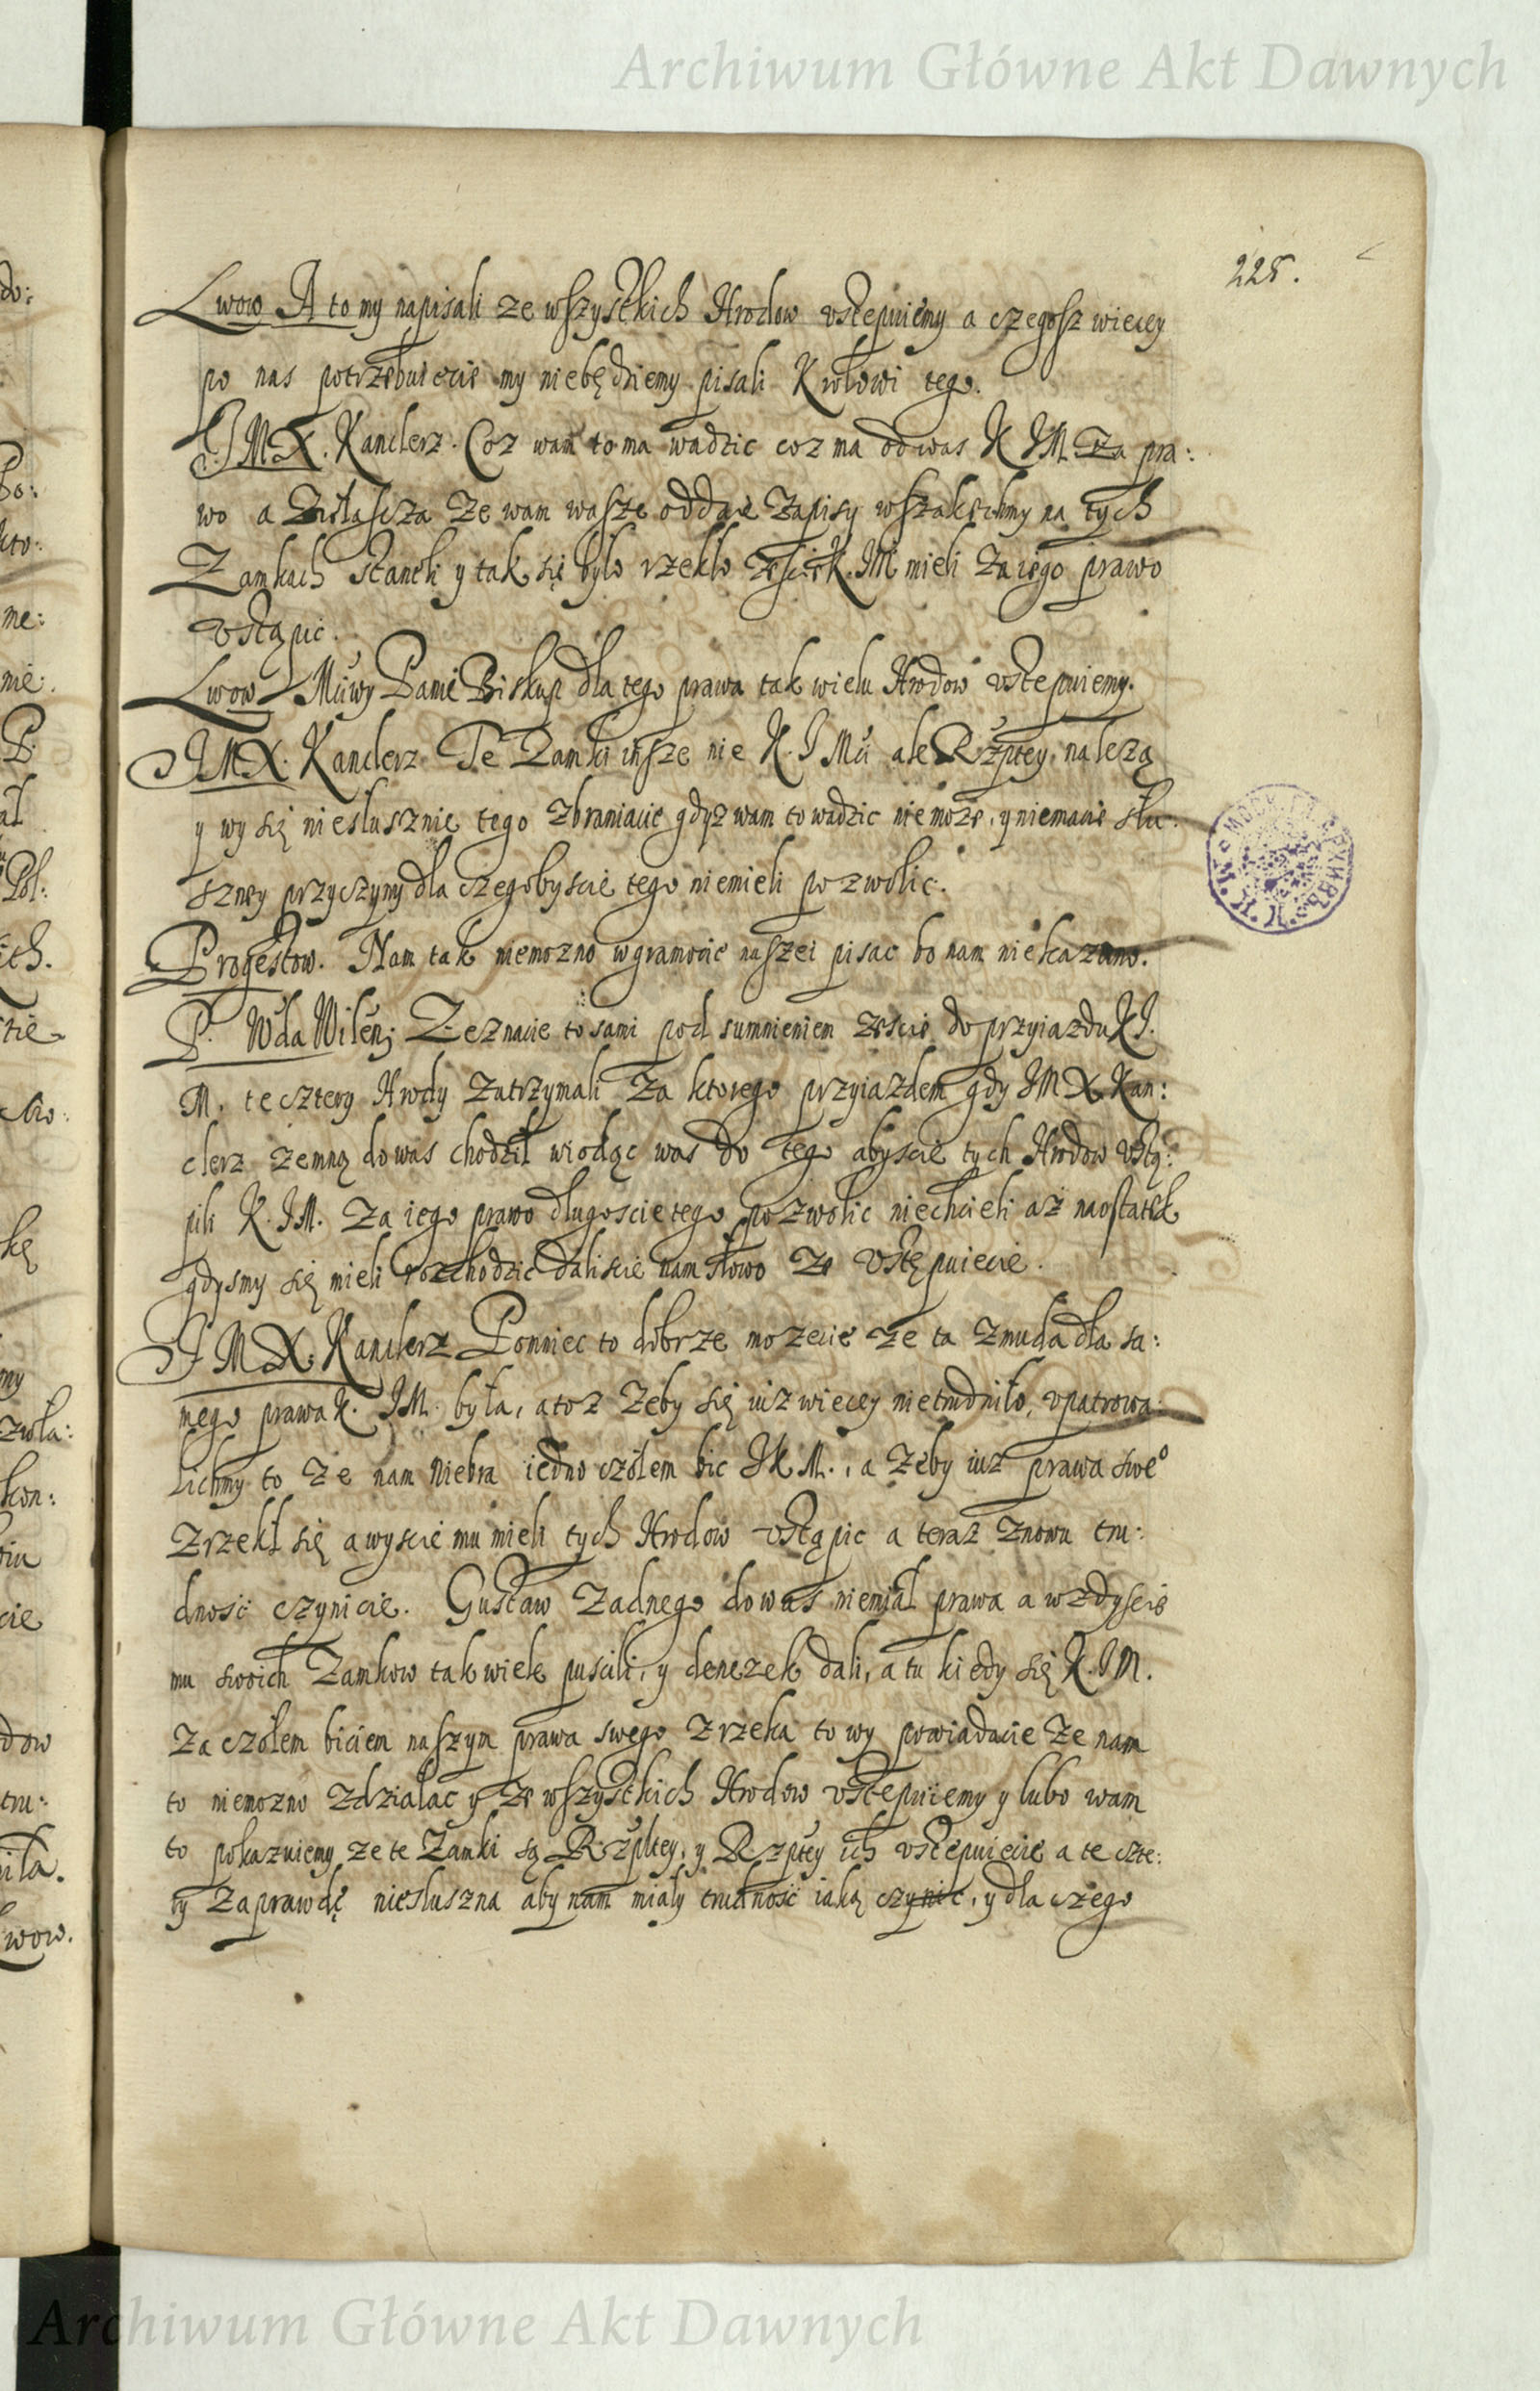 Archiwum Główne Akt Dawnych
225.
Lwow A to my napisali ze wszystkich Hrodow vstepuiemy a czegosz wiecey
po nas potrzebuiecie my niebędziemy pisali Krolowi tego.
JMX. Kanclerz. Coz wam to ma wadzic coz ma od was K JM za pra:
wo a zwłascza ze wam wasze oddaie zapisy wszakechmy na tych
Zamkach staneli y tak się było rzekło zescie K. JM mieli za iego prawo
vstąpic.
Lwow Muwy Panie Biskup dla tego prawa tak wielu Hrodow vstepuiemy.
JMX. Kanclerz Te Zamki insze nie K. J Mci ale Rzptey. nalezą
y wy się niesłusznie tego zbraniacie gdyz wam to wadzic nie może, y niemacie słu:
szney przyczyny dla czegobyscie tego niemieli pozwolic.
Progestow. Nam tak niemozno w gramocie naszei pisac bo nam niekazano.
P. Wda Wilen; Zeznacie to sami pod sumnieniem zescie do przyiazdu K J.
M. te cztery Hrody zatrzymali za ktorego przyiazdem gdy JMX Kan:
clerz zemną do was chodził wiodąc was do tego abyscie tych Hrodow vstą:
pili K. JM. za iego prawo długoscie tego pozwolic niechcieli aż naostatek
gdysmy się mieli rozchodzic daliscie nam słowo ze vstępuiecie.
JMX. Kanclerz Pomniec to dobrze mozecie ze ta zmuda dla sa:
mego prawa K. JM. była, a toz zeby się iuz wiecey nietrudniło, vpatrowa:
lichmy to ze nam niebra iedno czołem bic JK M., a zeby iuz prawa swe°
zrzekł się a wyscie mu mieli tych Hrodow vstąpic a teraz znowu tru:
dnosć czynicie. Gustaw zadnego do was niemiał prawa a wzdyscie
mu swoich Zamkow tak wiele puscili, y denezek dali, a tu kiedy się K. JM.
za czołem biciem naszym prawa swego zrzeka to wy powiadacie ze nam
to niemozno zdziałac y ze wszystkich Hrodow vstepuiemy y lubo wam
to pokazuiemy ze te Zamki są Rzpltey, y Rzptey ich vstepuiecie a te czte:
ry zaprawdę niesłuszna aby nam miały trudnosć iaką czynic, y dla czego
Archiwum Główne Akt Dawnych